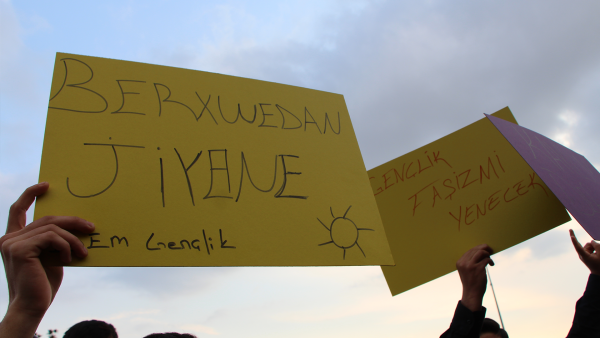 BERXWEDAN
JİYANE
Em Gençlik
GENÇLİK
FAŞİZMİ
YENECEK